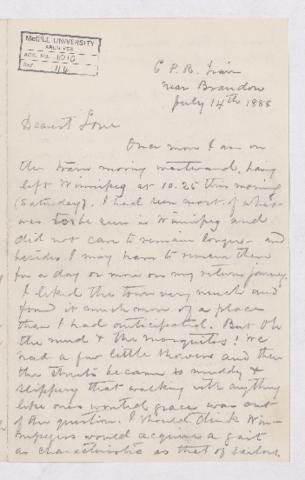 McGILL UNIVERSITY
ARCHIVES
ACC. NO. 1010
REF. 44
C P. R. Train
near Brandon
July 14th 1888
Dearest Love
Once more I am on
the train moving westward, having
left Winnipeg at 10.25 this morning
(Saturday). I had seen most of what
was to be seen in Winnipeg and
did not care to remain longer - and
besides I may have to remain there
for a day or more on my return journey.
I liked the town very much and
found it much more of a place
than I had anticipated. But Oh
the mud & the mosquitos! We
had a few little showers and then
the streets became so muddy &
slippery that walking with anything
like ones wonted grace was out
of the question. I should think Win-
nipegers would acquire a gait
as characteristic as that of sailors